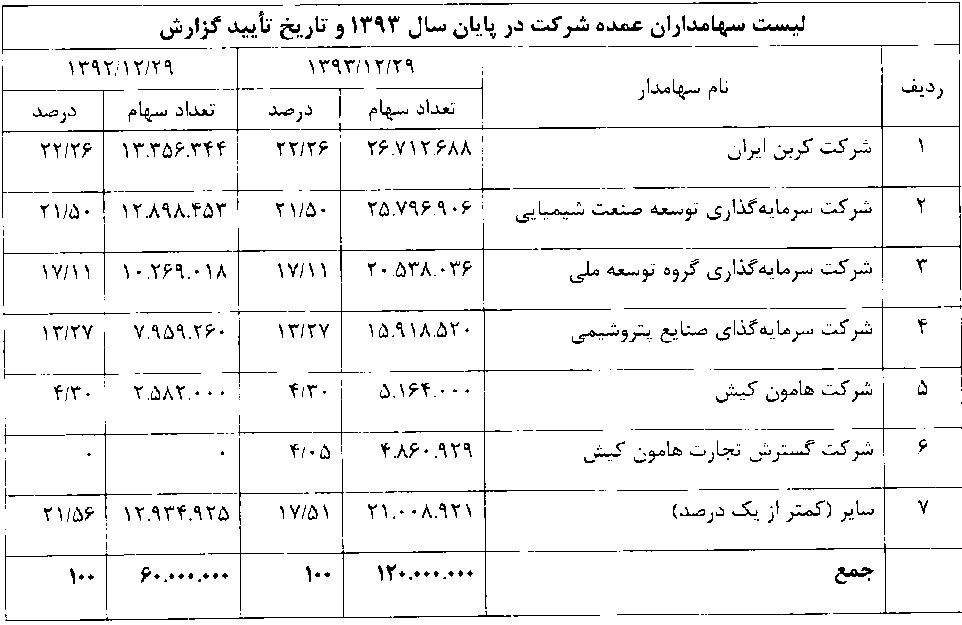 لیست سهامداران عمده شرکت در پایان سال ۱۳۹۳ و تاریخ تأیید گزارش
ردیف نام سهامدار ۱۳۹۳/۱۲/۲۹ ۱۳۹۲/۱۲/۲۹
تعداد سهام درصد تعداد سهام درصد
۱ شرکت کربن ایران ۲۶.۷۱۲.۶۸۸ ۲۲/۲۶ ۱۳.۳۵۶.۳۴۴ ۲۲/۲۶
۲ شرکت سرمایه‌گذاری توسعه صنعت شیمیایی ۲۵.۷۹۶.۹۰۶ ۲۱/۵۰ ۱۲.۸۹۸.۴۵۳ ۲۱/۵۰
۳ شرکت سرمایه‌گذاری گروه توسعه ملی ۲۰.۵۳۸.۰۳۶ ۱۷/۱۱ ۱۰.۲۶۹.۰۱۸ ۱۷/۱۱
۴ شرکت سرمایه‌گذای صنایع پتروشیمی ۱۵.۹۱۸.۵۲۰ ۱۳/۲۷ ۷.۹۵۹.۲۶۰ ۱۳/۲۷
۵ شرکت هامون کیش ۵.۱۶۴.۰۰۰ ۴/۳۰ ۲.۵۸۲.۰۰۰ ۴/۳۰
۶ شرکت گسترش تجارت هامون کیش ۴.۸۶۰.۹۲۹ ۴/۰۵ ۰ ۰
۷ سایر (کمتر از یک درصد) ۲۱.۰۰۸.۹۲۱ ۱۷/۵۱ ۱۲.۹۳۴.۹۲۵ ۲۱/۵۶
جمع ۱۲۰.۰۰۰.۰۰۰ ۱۰۰ ۶۰.۰۰۰.۰۰۰ ۱۰۰